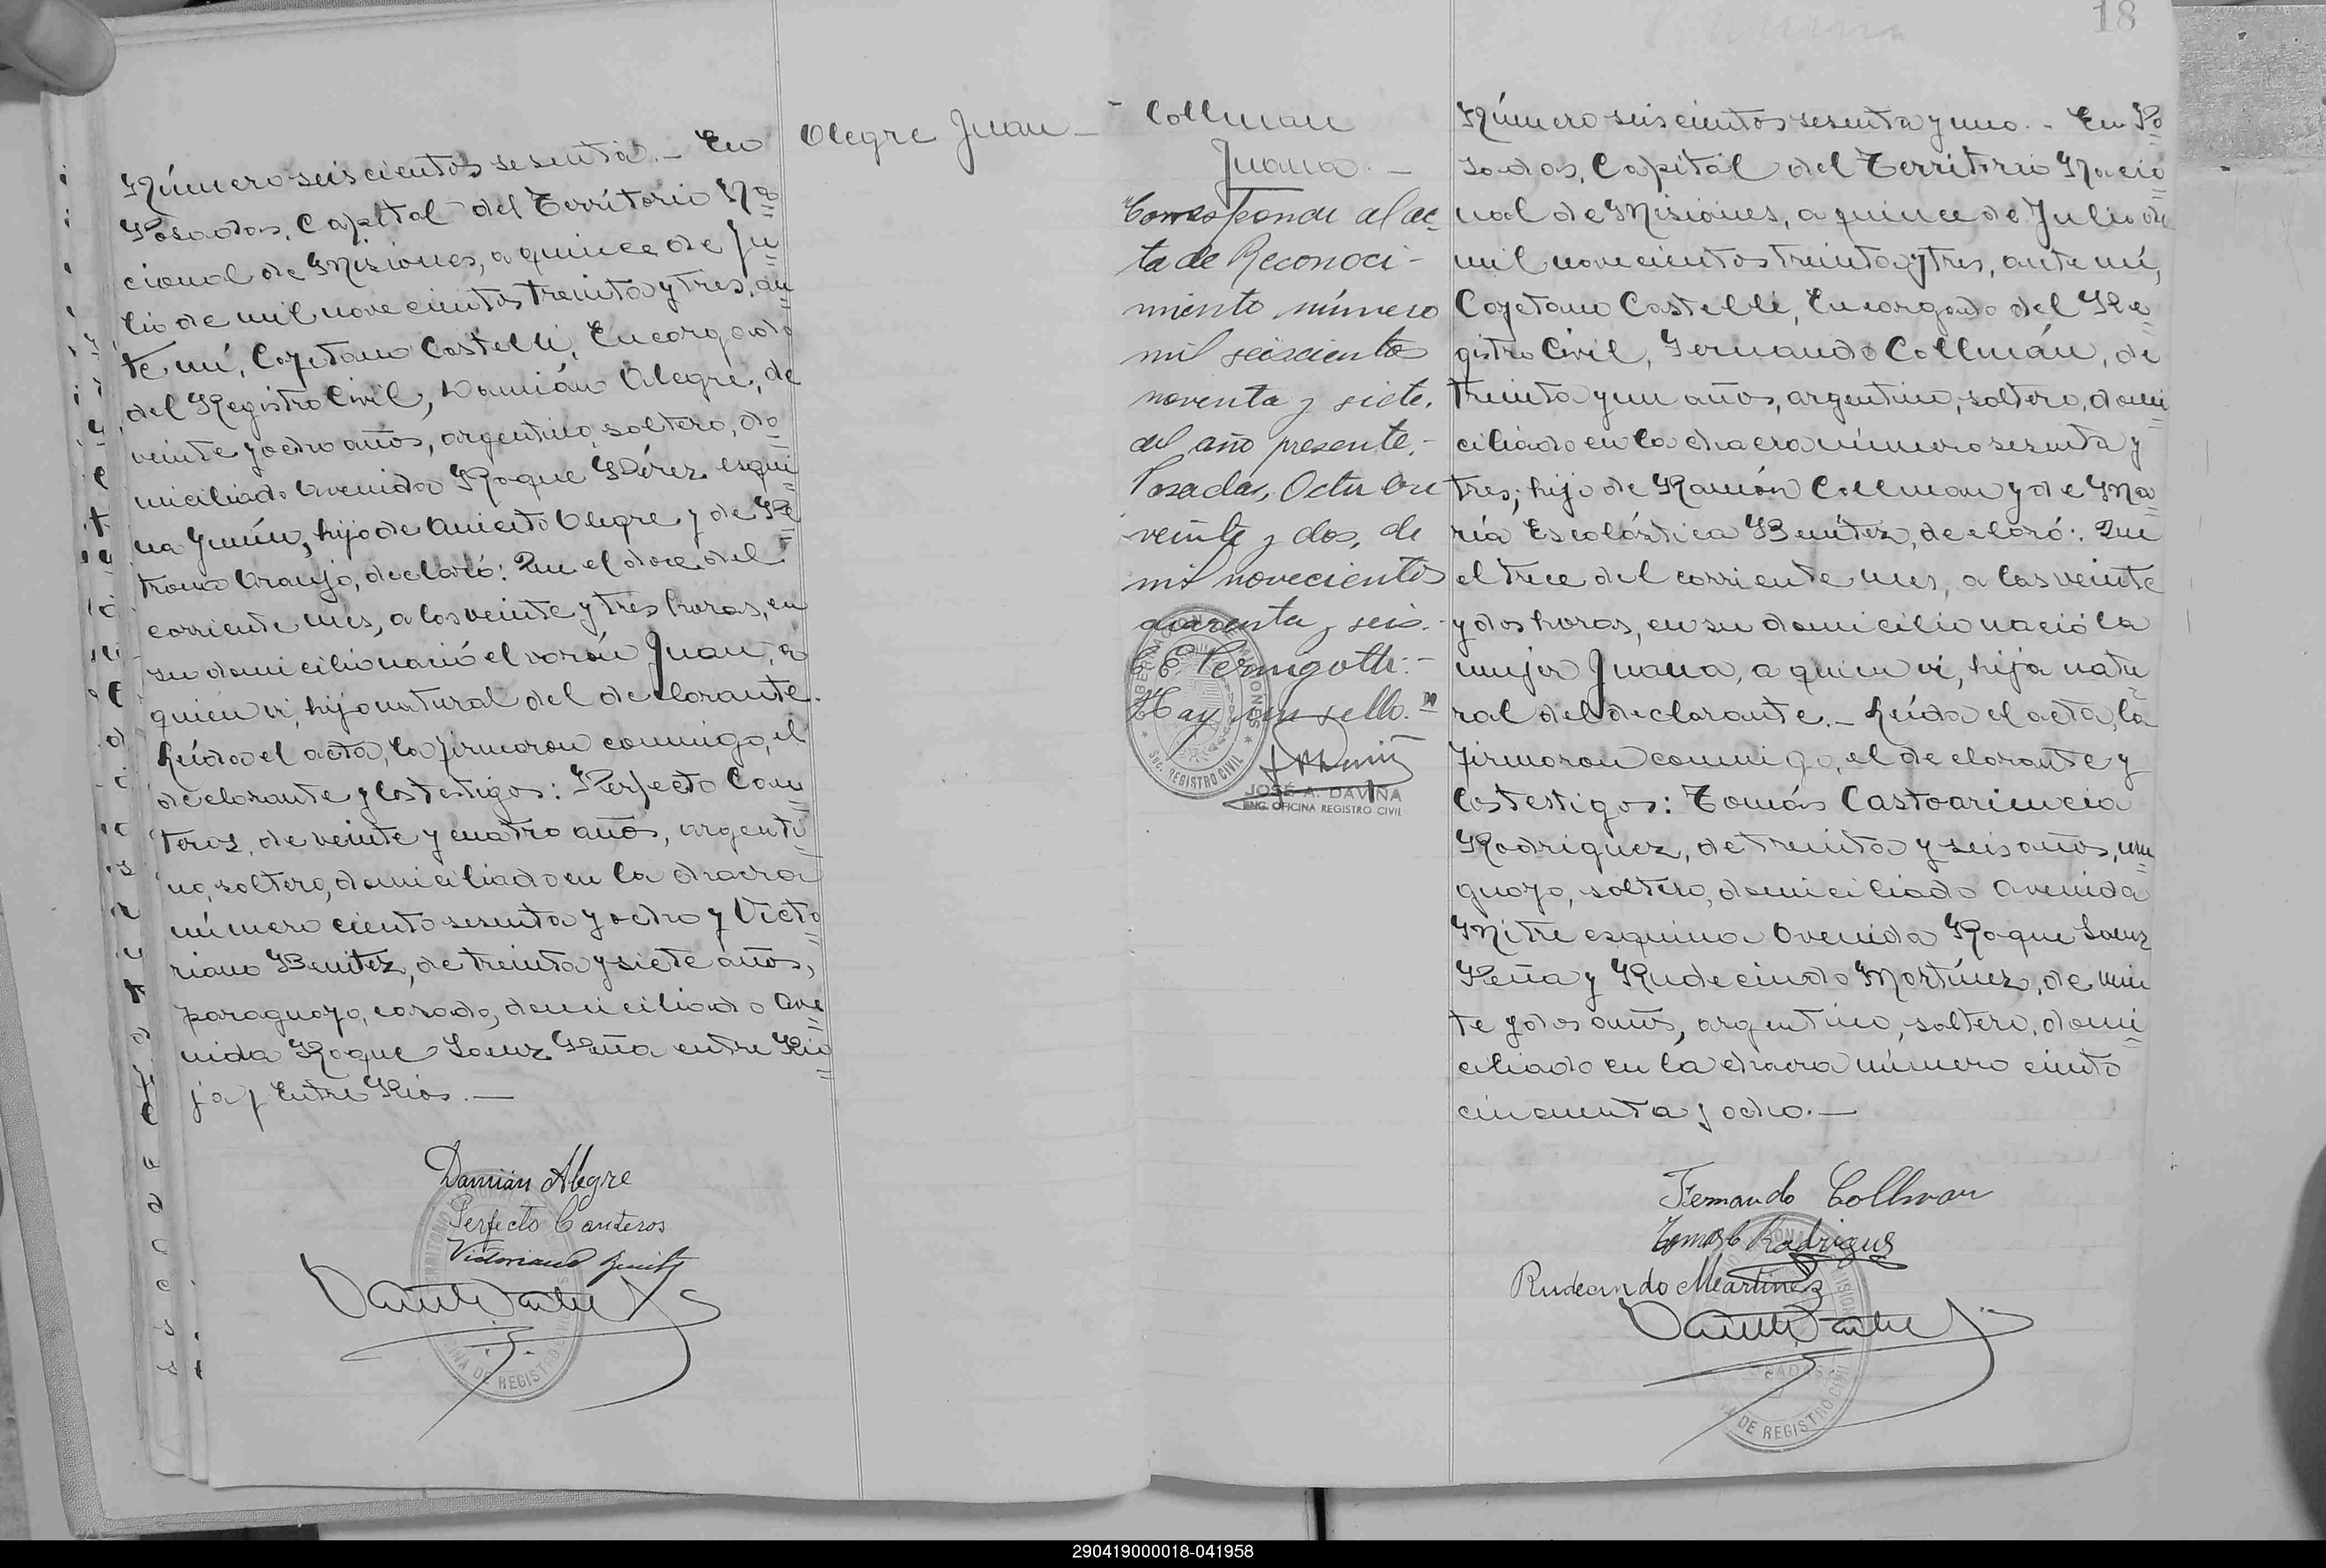 Número seiscientos sesenta.- En
Posadas, Capital del Territorio Na
cional de Misiones, a quince de Ju
lio de mil novecientos treinta y tres, an
te mí, Cayetano Castelli, Encargado
del Registro Civil, Damián Alegre, de
veinte y ocho años, argentino, soltero, do
miciliado Avenida Roque Pérez esqui
na Junín, hijo de Aniceto Alegre y de Pe
trona Araujo, declaró: Que el doce del
corriente mes, a las veinte y tres horas, en
su domicilio nació el varón Juan, a
quien vi, hijo natural del declarante.
Leída el acta, la firmaron conmigo, el
declarante y los testigos: Perfecto Can
teros, de veinte y cuatro años, argenti
no, soltero, domiciliado en la chacra
número ciento sesenta y ocho y Victo
riano Benitez, de treinta y siete años,
paraguayo, casado, domiciliado Ave
nida Roque Saenz Peña entre Rio
ja y Entre Rios.-
Damián Alegre
Perfecto Canteros
Victoriano Benitz
OFICINA DE REGISTRO CIVIL
Alegre Juan-
- Collman
Juana.-
"Corresponde al ac-
ta de Reconoci-
miento número
mil seiscientos
noventa y siete,
del año presente.-
Posadas, Octubre
veinte y dos, de
mil novecientos
cuarenta y seis.-
Hay un sello."
SEC. REGISTRO CIVIL
JOSÉ A. DAVIÑA
ENC. OFICINA REGISTRO CIVIL
18
Número seiscientos sesenta y uno.- En Po
sadas, Capital del Territorio Nacio
nal de Misiones, a quince de Julio de
mil novecientos treinta y tres, ante mí,
Cayetano Castelli, Encargado del Re
gistro Civil, Fernando Collmán, de
treinta y un años, argentino, soltero, domi
ciliado en la chacra número sesenta y
tres, hijo de Ramón Collman y de Ma
ría Escolástica Benítez, declaró: Que
el trece del corriente mes, a las veinte
y dos horas, en su domicilio nació la
mujer Juana, a quien vi, hija natu
ral del declarante.- Leída el acta, la
firmaron conmigo, el declarante y
los testigos: Tomás Castoarincia
Rodriguez, de treinta y seis años, uru
guayo, soltero, domiciliado Avenida
Mitre esquina Avenida Roque Saenz
Peña y Rudecindo Martínez, de vein
te y dos años, argentino, soltero, domi
ciliado en la chacra número ciento
cincuenta y ocho.-
Fernando Collman
Tomas C Rodriguez
Rudecindo Martinez
DE REGISTRO CIVIL
290419000018-041958